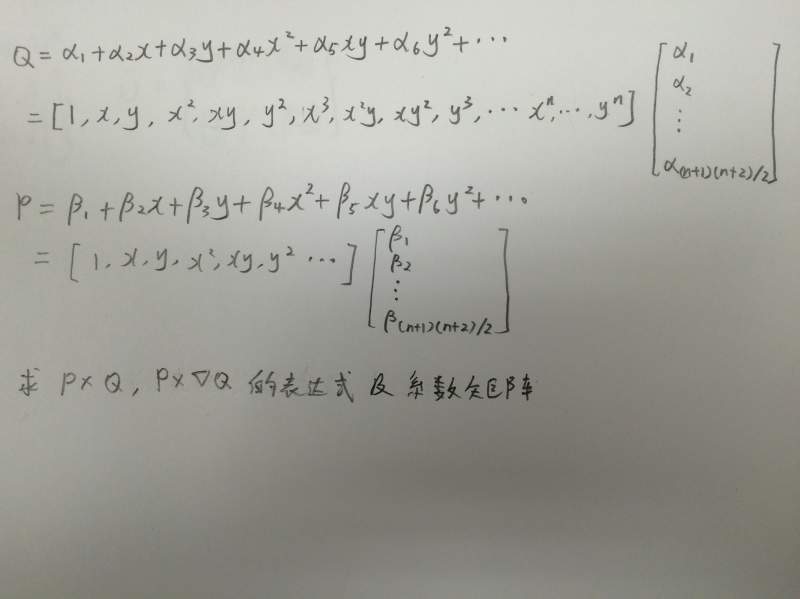 Q = α₁+α₂x+α₃y+α₄x²+α₅xy+α₆y²+⋯
= [1, x, y, x², xy, y², x³, x²y, xy², y³, ⋯ xⁿ, ⋯, yⁿ] [α₁ α₂ ⋮ α(n+1)(n+2)/2]
P = β₁+β₂x+β₃y+β₄x²+β₅xy+β₆y²+⋯
= [1, x, y, x², xy, y² ⋯] [β₁ β₂ ⋮ β(n+1)(n+2)/2]
求 P×Q, P×∇Q 的表达式及系数矩阵